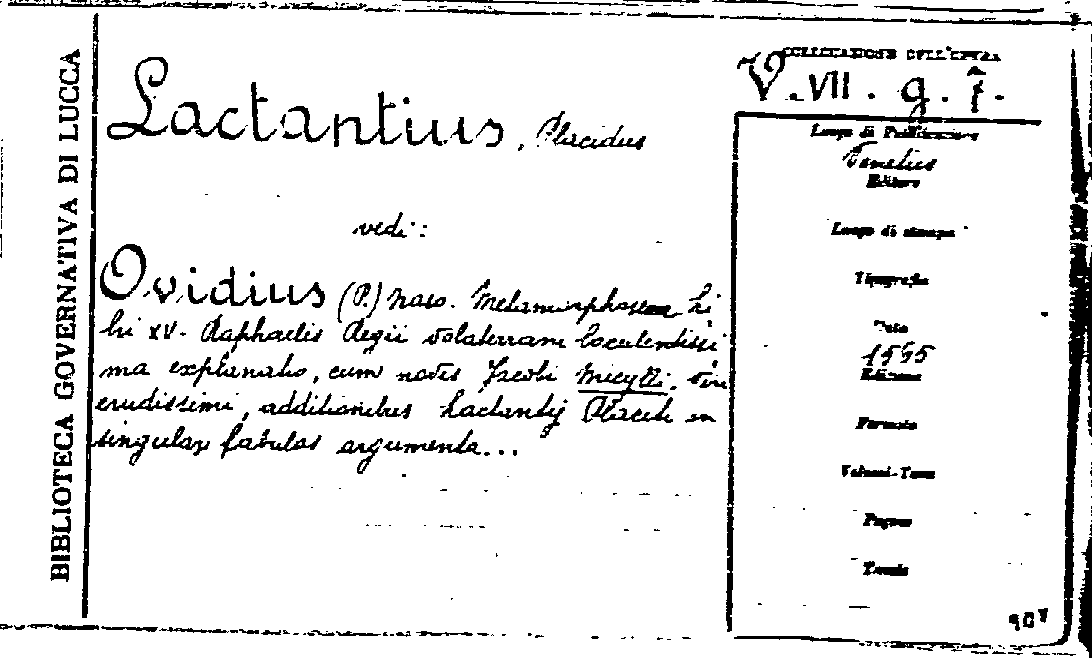 BIBLIOTECA GOVERNATIVA DI LUCCA
Lactantius, Placidus
vedi:
Ovidius (P.) Naso. Metamorphoseon li
bri XV. Raphaelis Regii volaterrani luculentissi
ma explanatio, cum novis Jacobi Micylli, viri
erudissimi, additionibus Lactantij Placidi in
singulas fabulas argumenta...
COLLOCAZIONE DELL'OPERA
V. VII. g. 7.
Luogo di Pubblicazione
Venetiis
Editore
Luogo di stampa
Tipografia
Data
1565
Edizione
Formato
Volumi-Tomi
Pagine
Tavole